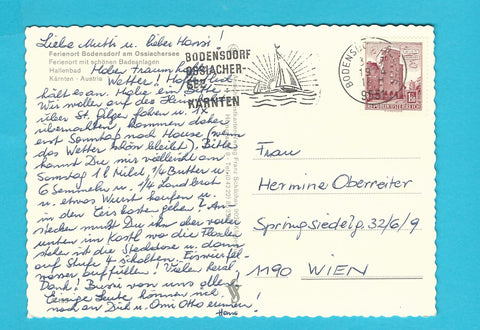 Liebe Mutti u. lieber Hansi!
Ferienort Bodensdorf am Ossiachersee
Ferienort mit schönen Badeanlagen
Hallenbad
Kärnten - Austria
Haben traumhaft
Wetter! Hoffentlich
hält es an. Habe eine Bitte
Wir wollen auf der
über St. fahren u. 1x
übernachten, kommen daher
erst Sonntag nach Hause (wenn
das Wetter schön bleibt). Bitte
kannst Du mir vielleicht am
Samstag 1 l Milch, 1/4 Butter u.
6 Semmeln u. 1/4 Landbrot
u. etwas Wurst kaufen u.
in den Eiskasten geben? An-
stecken mußt Du ihn aber vorher
unten im Kastl wo die Flaschen
stehen ist die Steckdose u. dann
auf Stufe 4 schalten. Eiswürfel-
wasser auffüllen! Vielen herzl.
Dank! Bussi von uns allen
Einige Leute können sich
noch an Dich u. Omi Otto erinnern!
Hans
BODENSDORF
OSSIACHER-
SEE
KÄRNTEN
BODENSD
9551
REPUBLIK ÖSTERREICH
Frau
Hermine Oberreiter
Springsiedelg. 32/6/9
1190 WIEN